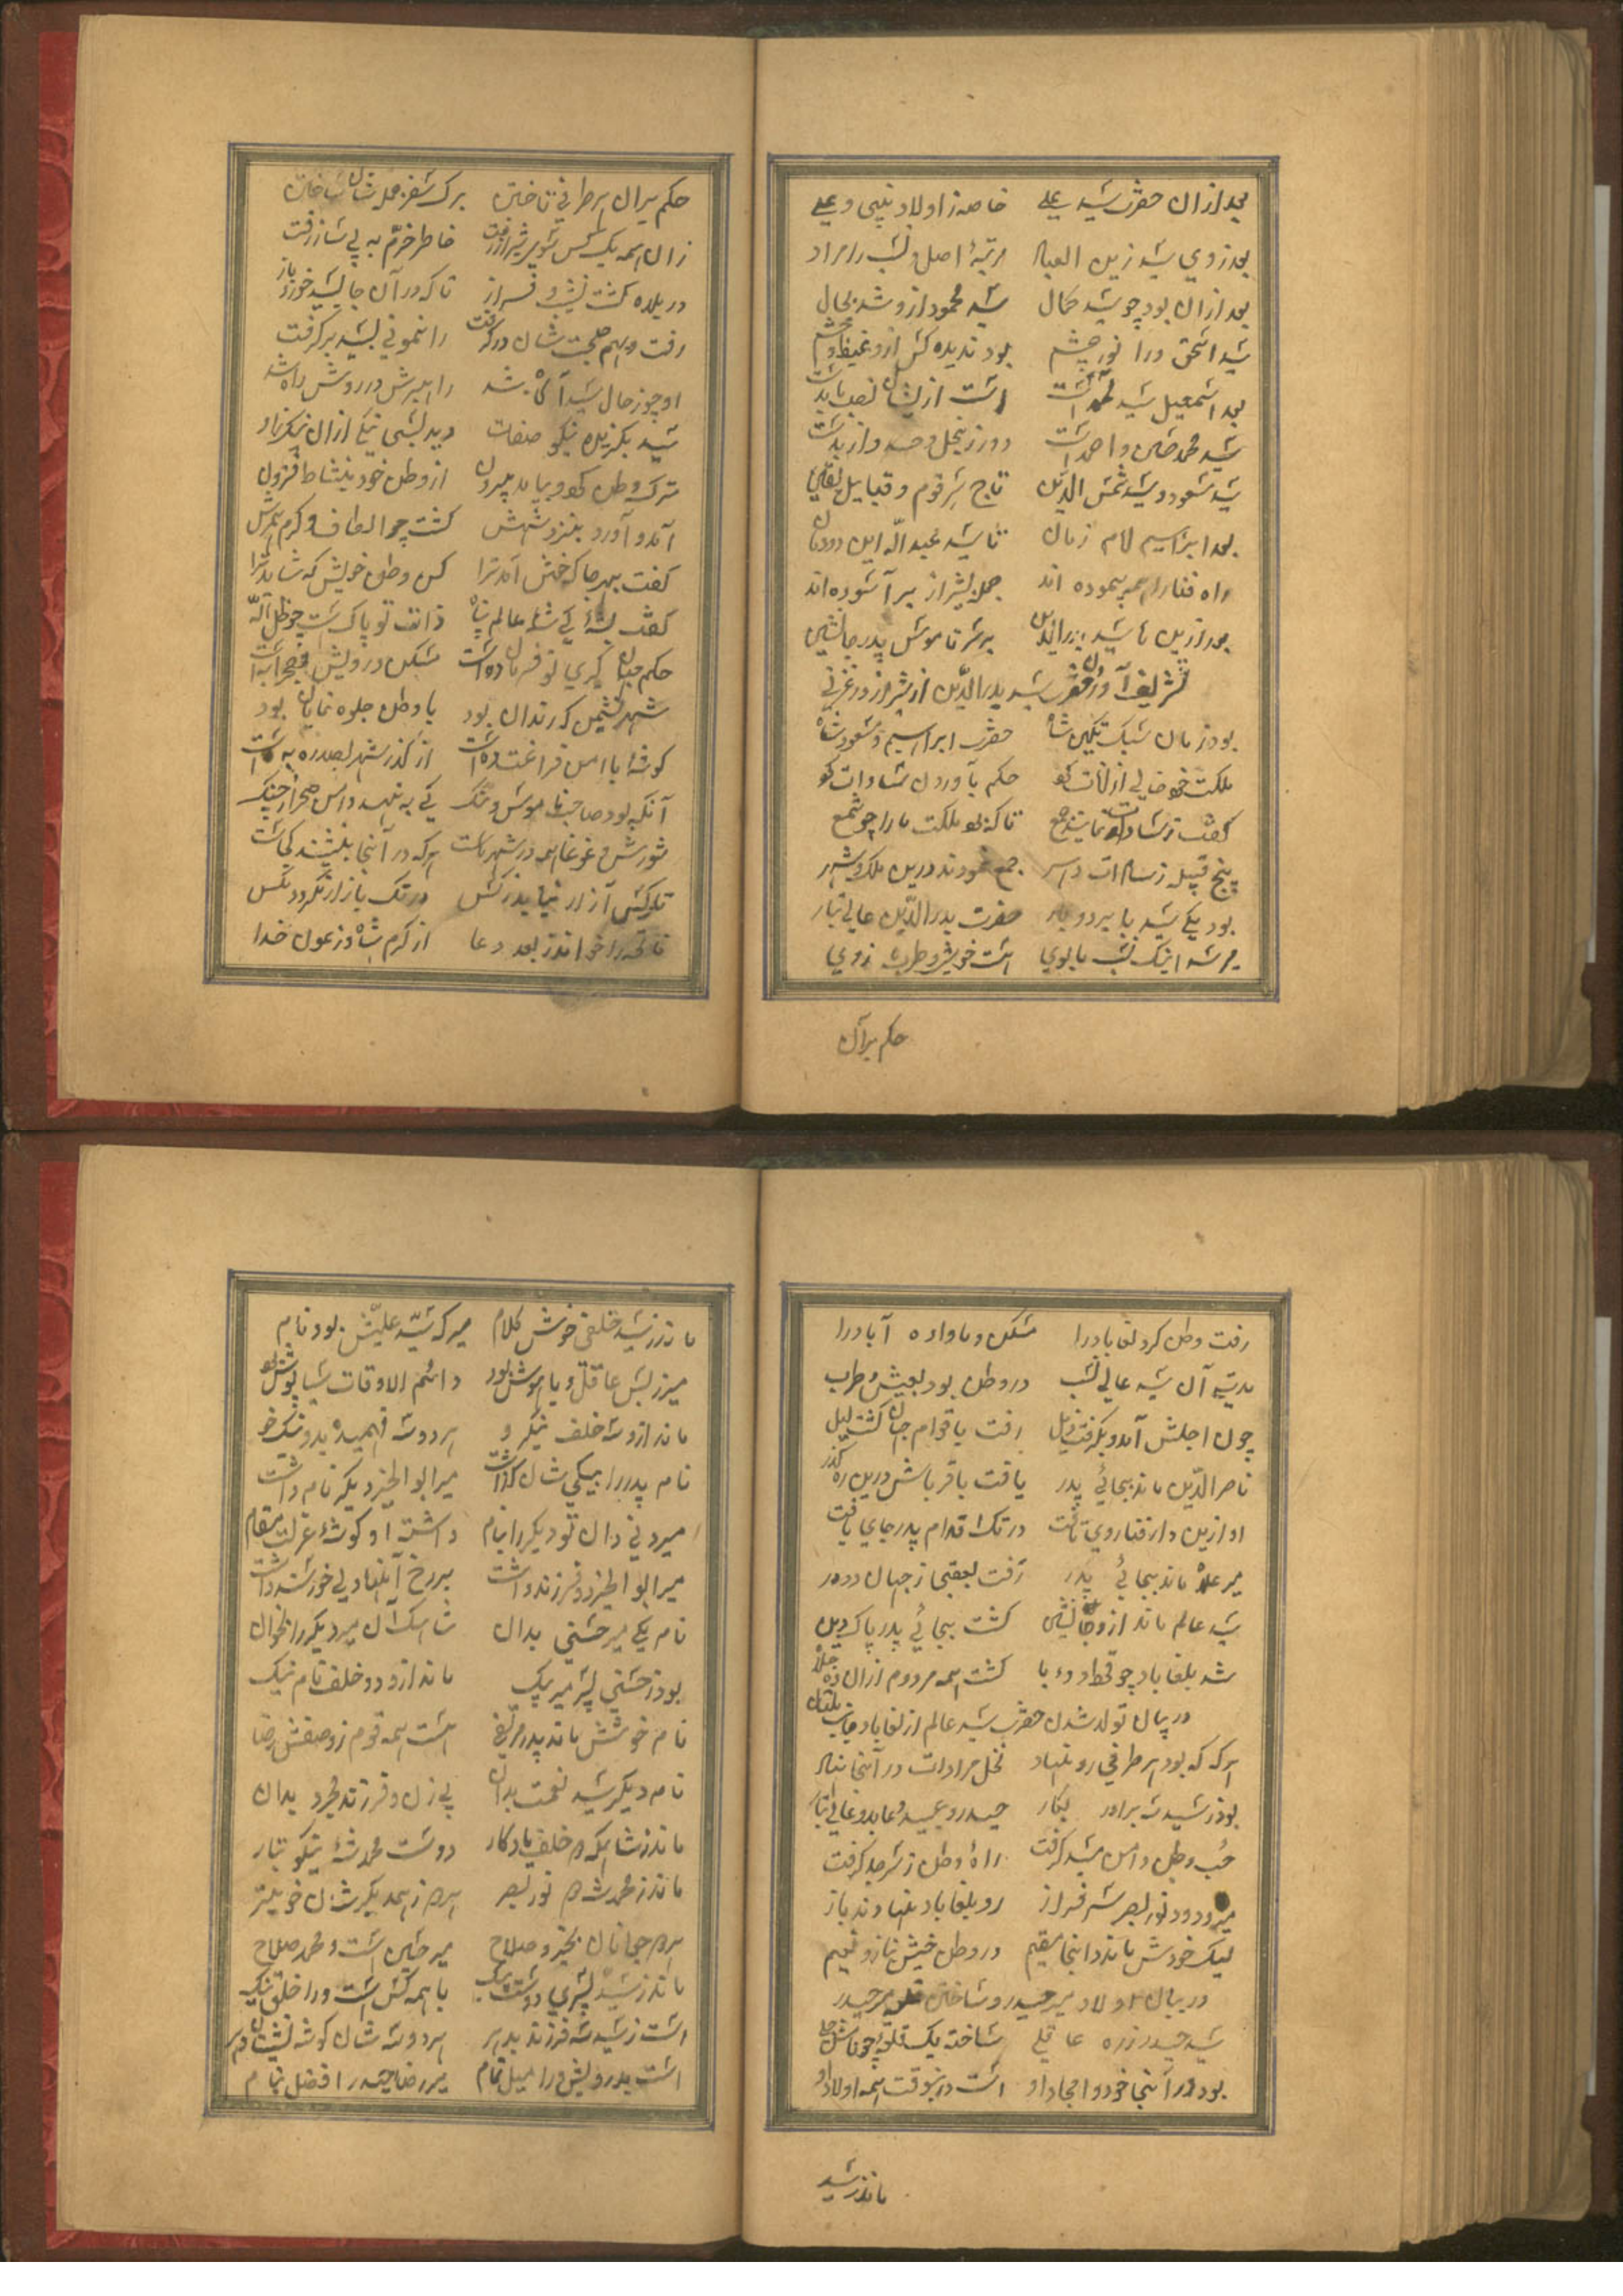 بعد ازان حضرت سید علی خاصه ز اولاد نبی و علی
بعد ز وی سید زین العباد مرتبهٔ اصل و نسب را مراد
بعد ازان بود چو سید کمال سید محمود ازو شد بحال
سید اسحق ورا نور چشم بود ندیده کس ازو غیظ و خشم
بعد اسمعیل سید است است ازیشان
سید محمد حسن و احمد است دور ز بخل و حسد و از بد است
سید مسعود و سید شمس الدین تاج سر قوم و قبایل یقین
بعد ابراهیم امام زمان تا سید عبد الله این دودمان
راه فنا را همه پیموده اند جمله بشیراز برآسوده اند
بعد ازین تا سید بدرالدین بر سر ناموس پدر جانشین
تشریف آوردن حضرت سید بدرالدین از شیراز در غزنی
بود زمان سبکتکین شاه حضرت ابراهیم و مسعود شاه
ملکت خود خالی از آفات کو حکم بآوردن سادات کو
گفت ز سادات نمایند جمع تا که بود ملکت ما را چو شمع
پنج قبیله ز سادات دهر جمع نمودند درین ملک و شهر
بود یکی سید با بردبار حضرت بدرالدین عالی تبار
میرسد اینک نسب ما بوی است خویش و طرب ز وی
حکم بران
حکم بران هر طرفی تاختن برگ سفر جمله شان ساختن
زان همه یک کس سوی شیراز رفت خاطر خرم به پی ساز رفت
در بلده گشت نشیب و فراز تا که در آن جا بسید خورد باز
رفت و هم صحبت شان درگرفت رانمونی بسید برگرفت
او چو ز حال سید آگاه شد راهبرش در روش راه شد
سید بگزیده نیکو صفات دید بسی نیکی ازان نیکزاد
ترک وطن کرد و بیامد برون از وطن خود بنشاط فزون
آمد و آورد بنزد شهش گشت چو الطاف و کرم همرهش
گفت بهر جا که خوش آمد ترا کن وطن خویش که شاید ترا
گفت بشه کی شه عالم پناه ذات تو پاک است چو ظل اله
حکم جهان گیری تو فرمان ده است مسکن درویش بصحرا به است
شهر نشیمن که رندان بود با وطن جلوه نمایان بود
گوشهٔ با امن فراغت ده است از گذر شهر بصد ره به است
آنکه بود صاحب ناموس و ننگ کی به نهد دامن صحرا ز چنگ
شورش و غوغا همه در شهر هاست هر که در آنجا بنشیند کجاست
تا بکس آزار نیابد ز کس در تک بازار نگردد مگس
فاتحه را خواند ز بعد دعا از کرم شاه و ز عون خدا
رفت وطن کرد لغاباد را مسکن و ماوا ده آباد را
مدتی آن سید عالی نسب در وطن بود بعیش و طرب
چون اجلش آمد و بگرفت ذیل رفت باقوام جهان گشت لیل
ناصر الدین ماند بجای پدر یافت باقرباش درین ره گذر
او ازین دار فنا روی تافت در تک اقدام پدر جای یافت
میر علاء ماند بجای پدر رفت بعقبی ز جهان دودر
سید عالم ماند ازو جانشین گشت بجای پدر پاک دین
شد بلغاباد چو قحط و وبا گشت همه مردم ازان ده جلا
در بیان تولد شدن حضرت سید عالم از لغاباد جانب بلقان
هر که که بود هر طرفی رو نهاد نخل مرادات در آنجا نهاد
بود ز سید سه برادر بکار حیدر و عبید و عابد و عالی تبار
حب وطن دامن سید گرفت راه وطن از سر جد گرفت
میر و دو نور بصر سرفراز رو بلغاباد نهادند باز
لیک خودش ماند در اینجا مقیم در وطن خویش بناز و نعیم
در بیان اولاد میر حیدر و ساختن قلعه میر حیدر
سید حیدر ز ره عاقلی ساخته یک قلعهٔ چون
بود در آنجا خود و امجاد او است درینوقت همه اولاد او
ماند ز سید
ماند ز سید خلفی خوش کلام میر که سید علیش بود نام
میر ز بس عاقل و با هوش بود دائم الاوقات سیاپوش بود
ماند ازو سه خلف نیکرو هر دو سه فهمیده بدو نیک خو
نام پدر را بنیکی شان گذاشت میر ابو الخیر دیگر نام داشت
میردنی دان تو دیگر را بنام داشته او گوشهٔ عزلت مقام
میر ابو الخیر دو فرزند داشت بر رخ آنها دلی خورسند داشت
نام یکی میر حسنی بدان شاه سکان میر دیگر را بخوان
بود ز حسنی پسر میر بیک ماند ازو دو خلف نام نیک
نام خوشش ماند پدر مرتضی هست همه قوم ز وصفش رضا
نام دیگر سید نعمت بدان بی زن و فرزند مجرد بدان
ماند ز شاه خلف یادگار دوست محمد شه نیکو تبار
ماند ز محمد سه نور بصر هر سه ز همدیگر شان خوبتر
هر سه جوانان بخیر و صلاح میر حسین است و محمد صلاح
ماند ز سید پسری با همه کس است ورا خلق نیک
است ز سید سه فرزند هر دو سه شان گوشه نشین
است بدرویش ورا میل تمام میر رضا حیدر افضل بنام